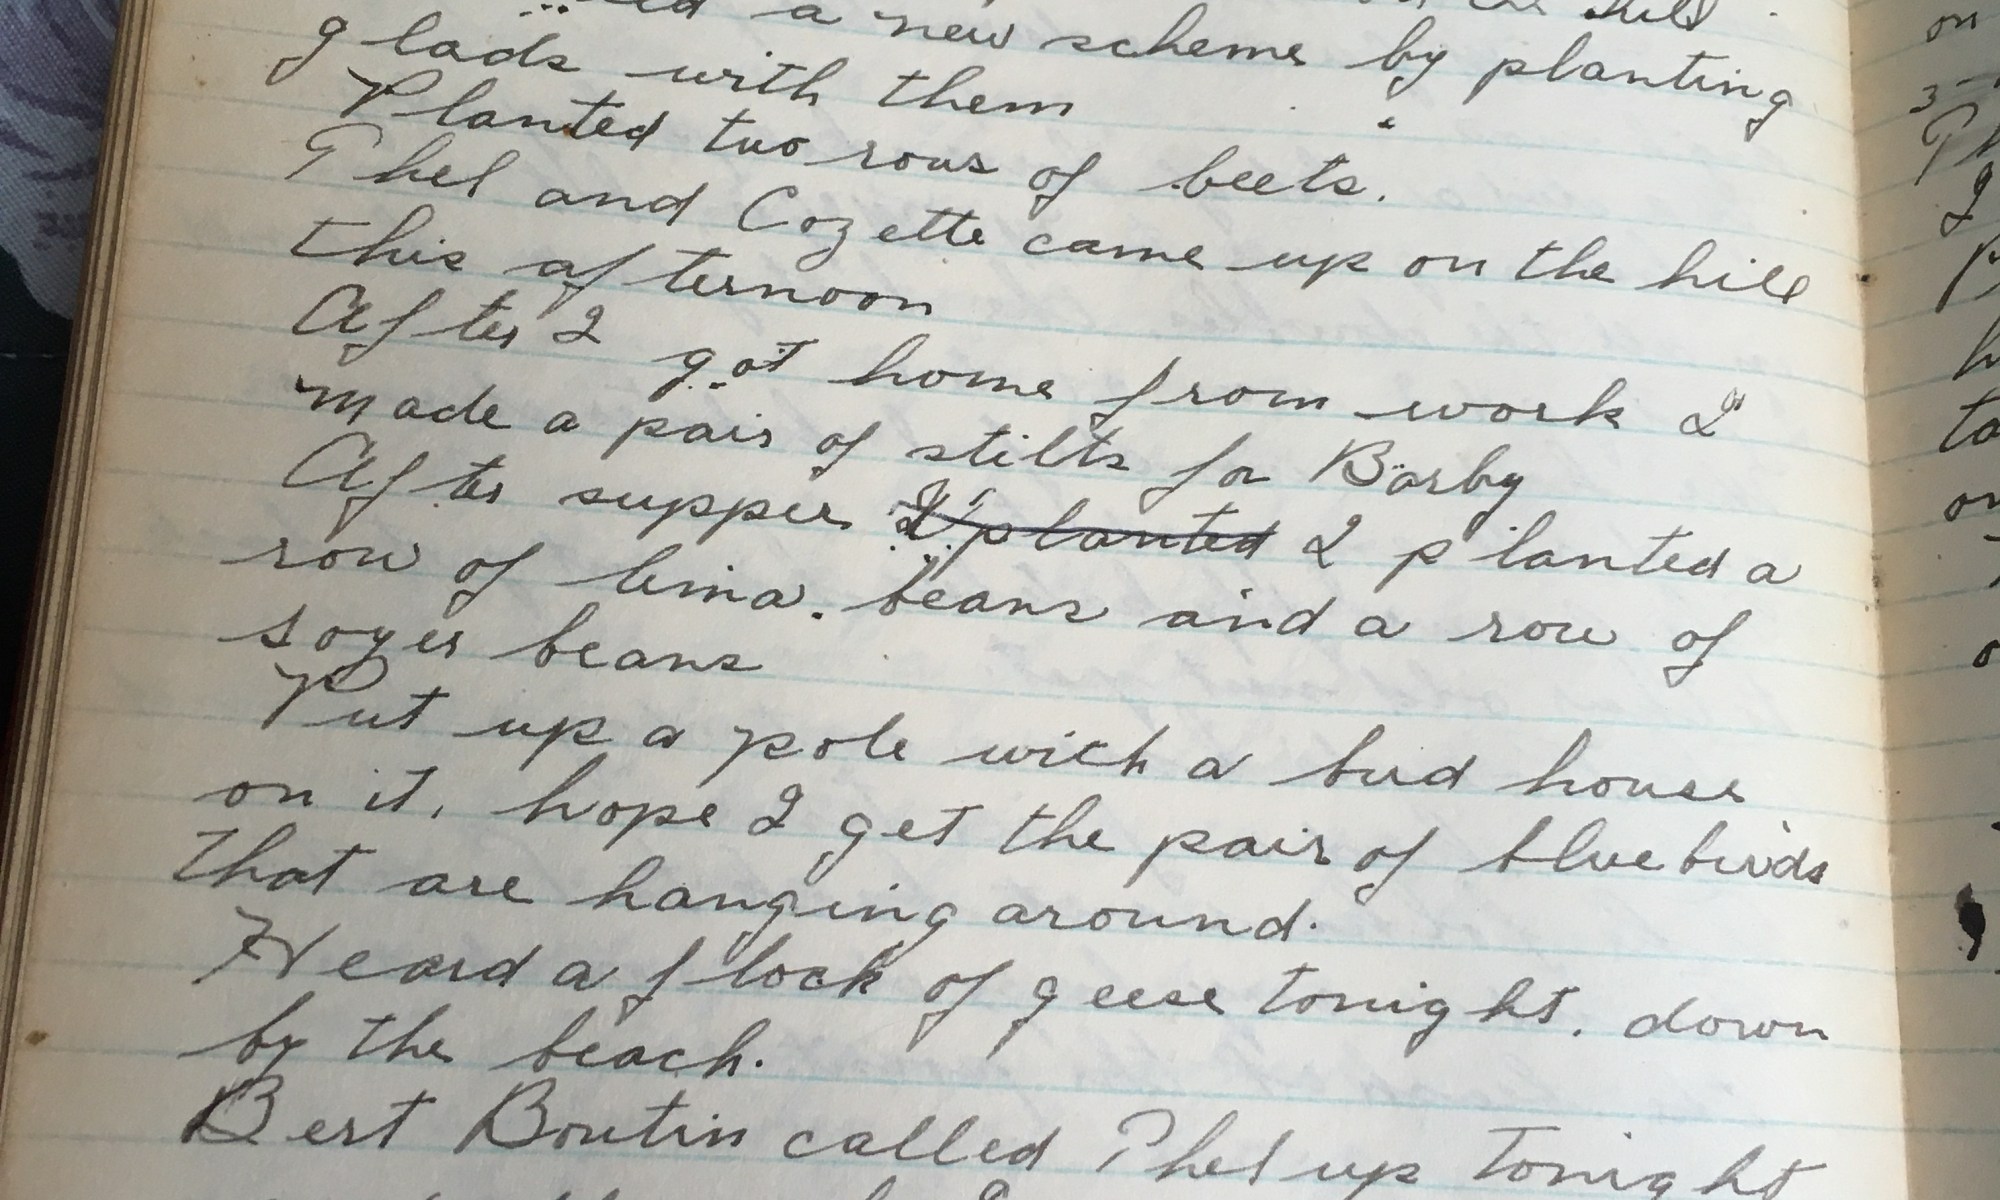 a new scheme by planting
glads with them
Planted two rows of beets.
Phel and Cozette came up on the hill
this afternoon
After I got home from work I
made a pair of stilts for Barby
After supper I planted I planted a
row of lima. beans and a row of
soyer beans
Put up a pole with a bird house
on it, hope I get the pair of blue birds
that are hanging around.
Heard a flock of geese tonight. down
by the beach.
Bert Boutin called Phel up tonight